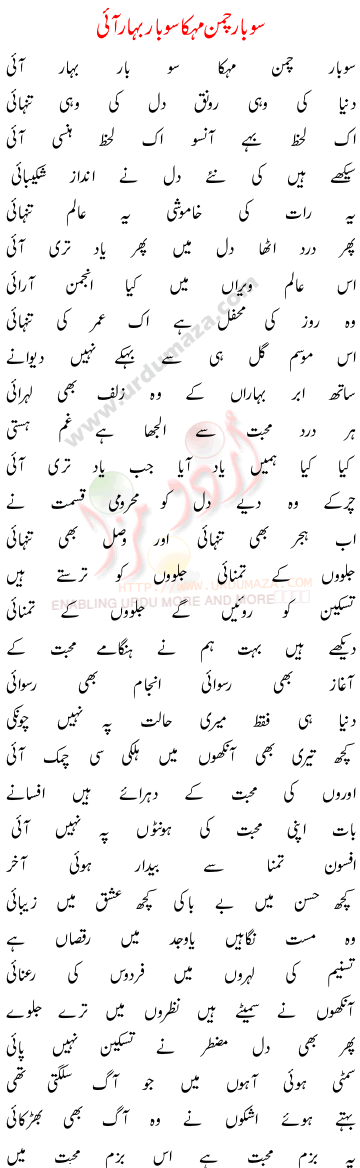 سو بار چمن مہکا سو بار بہار آئی
سو بار چمن مہکا سو بار بہار آئی
دنیا کی وہی رونق دل کی وہی تنہائی
اک لحظ بہے آنسو اک لحظ ہنسی آئی
سیکھے ہیں کی نئے دل نے انداز شکیبائی
یہ رات کی خاموشی یہ عالم تنہائی
پھر درد اٹھا دل میں پھر یاد تری آئی
اس عالم ویراں میں کیا انجمن آرائی
وہ روز کی محفل ہے اک عمر کی تنہائی
اس موسم گل ہی سے بہکے نہیں دیوانے
ساتھ ابر بہاراں کے وہ زلف بھی لہرائی
ہر درد محبت سے الجھا ہے غم ہستی
کیا کیا ہمیں یاد آیا جب یاد تری آئی
چرکے وہ دیے دل کو محرومی قسمت نے
اب ہجر بھی تنہائی اور وصل بھی تنہائی
جلووں کے تمنائی جلووں کو ترستے ہیں
تسکین کو روئیں گے جلووں کے تمنائی
دیکھے ہیں بہت ہم نے ہنگامے محبت کے
آغاز بھی رسوائی انجام بھی رسوائی
دنیا ہی فقط میری حالت پہ نہیں چونکی
کچھ تیری بھی آنکھوں میں ہلکی سی چمک آئی
اوروں کی محبت کے دہرائے ہیں افسانے
بات اپنی محبت کی ہونٹوں پہ نہیں آئی
افسون تمنا سے بیدار ہوئی آخر
کچھ حسن میں بے باکی کچھ عشق میں زیبائی
وہ مست نگاہیں یاوجد میں رقصاں ہے
تسنیم کی لہروں میں فردوس کی رعنائی
آنکھوں نے سمیٹے ہیں نظروں میں ترے جلوے
پھر بھی دل مضطر نے تسکین نہیں پائی
سمٹی ہوئی آہوں میں جو آگ سلگتی تھی
بہتے ہوئے اشکوں نے وہ آگ بھی بھڑکائی
یہ بزم محبت ہے اس بزم محبت میں
www.urdumaza.com
اردو مزا
HTTP://WWW.URDUMAZA.COM
ENABLING URDU MORE AND MORE